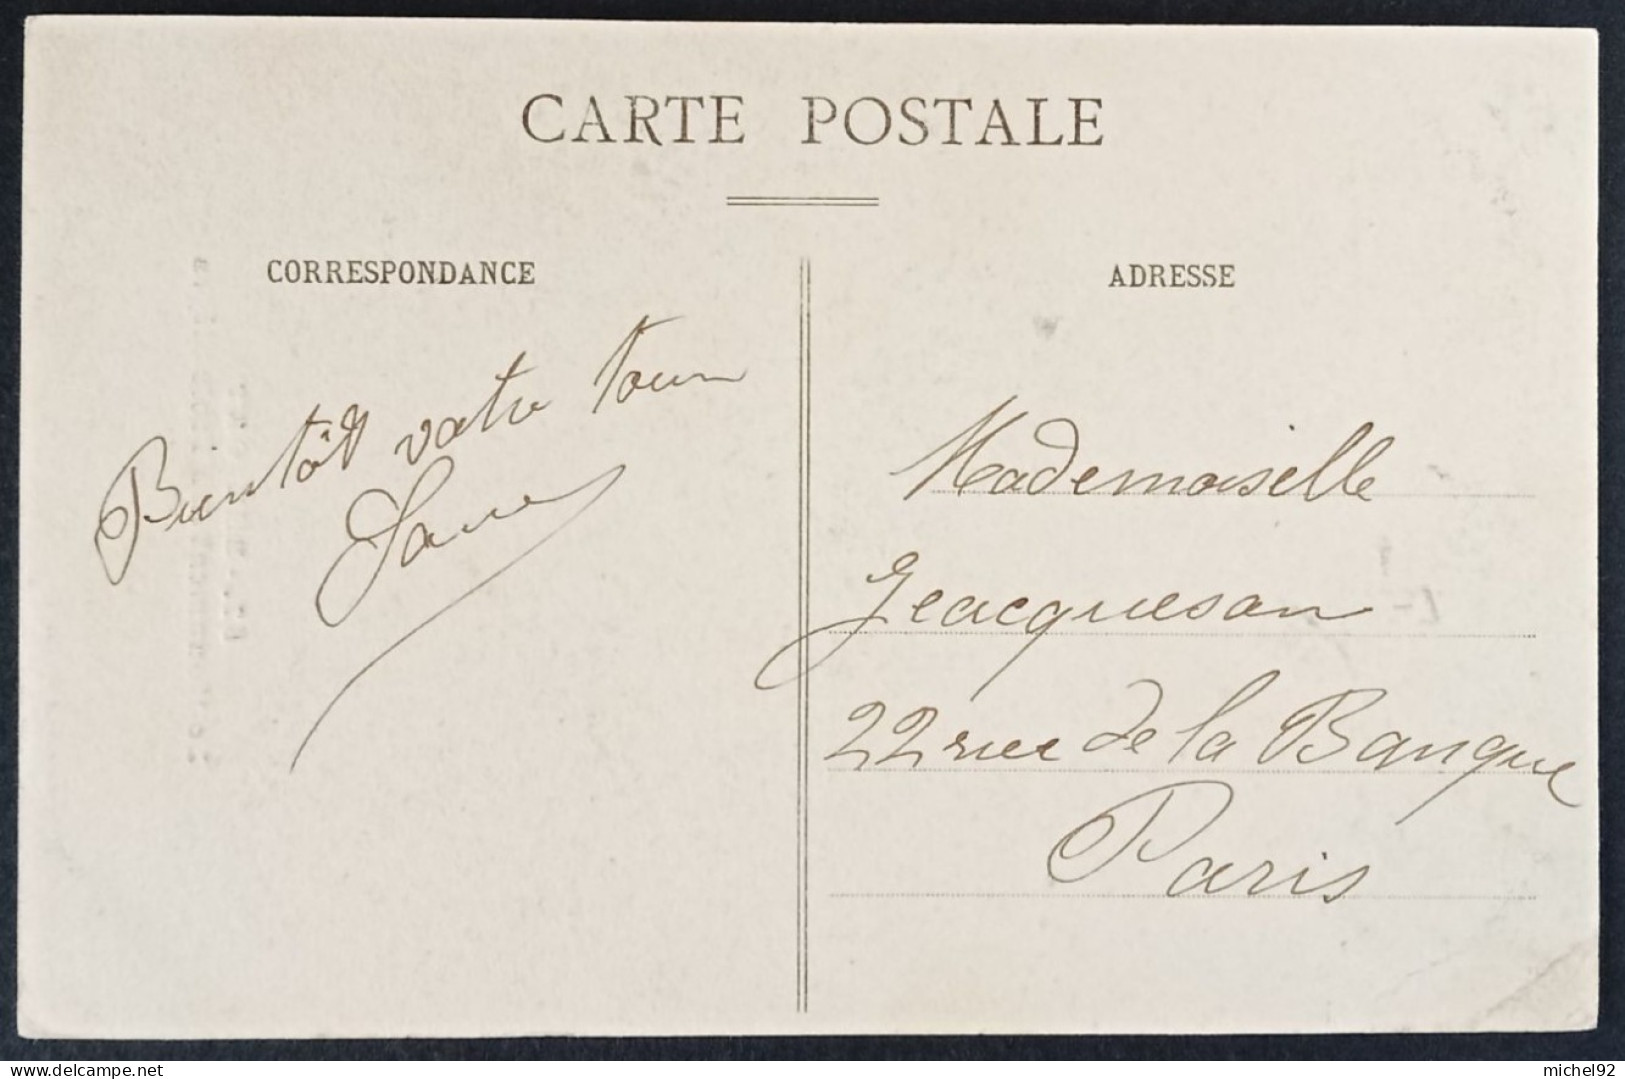 CARTE POSTALE
CORRESPONDANCE
ADRESSE
Bientôt votre tour
Mademoiselle
Jeacquesan
22 rue de la Banque
Paris
delcampe.net
michel92